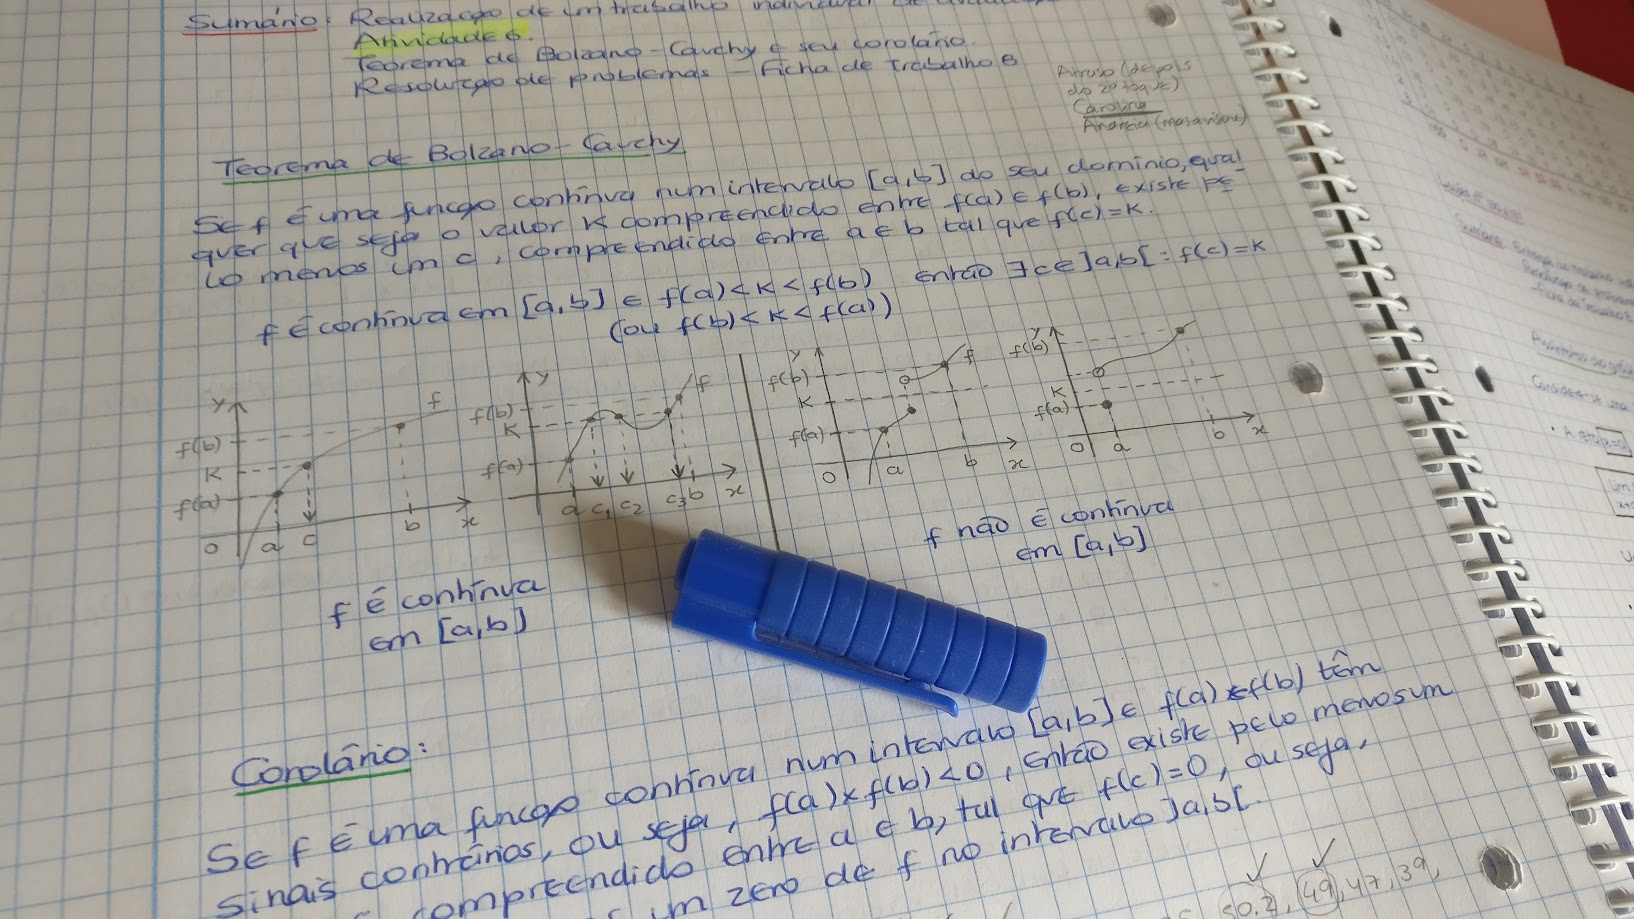 Sumário: Realização de um trabalho individual de
Atividade 6.
Teorema de Bolzano-Cauchy e seu corolário.
Resolução de problemas - Ficha de Trabalho 6
Arruso (depois
do 2º toque)
Carolina
Teorema de Bolzano-Cauchy
Se f é uma função contínua num intervalo [a,b] do seu domínio, qual
quer que seja o valor K compreendido entre f(a) e f(b), existe pe
lo menos um c, compreendido entre a e b tal que f(c)=K.
f é contínua em [a,b] e f(a)<K<f(b) então ∃c∈]a,b[: f(c)=K
(ou f(b)<K<f(a))
y f f(b) K f(a) 0 a c b x
y f f(b) K f(a) a c₁ c₂ c₃ b x
y f f(b) K f(a) 0 a b x
y f(b) K f(a) 0 a b x
f é contínua
em [a,b]
f não é contínua
em [a,b]
Corolário:
Se f é uma função contínua num intervalo [a,b] e f(a) e f(b) têm
sinais contrários, ou seja, f(a)×f(b)<0, então existe pelo menos um
compreendido entre a e b, tal que f(c)=0, ou seja,
um zero de f no intervalo ]a,b[.
50.2, 49, 47, 39,